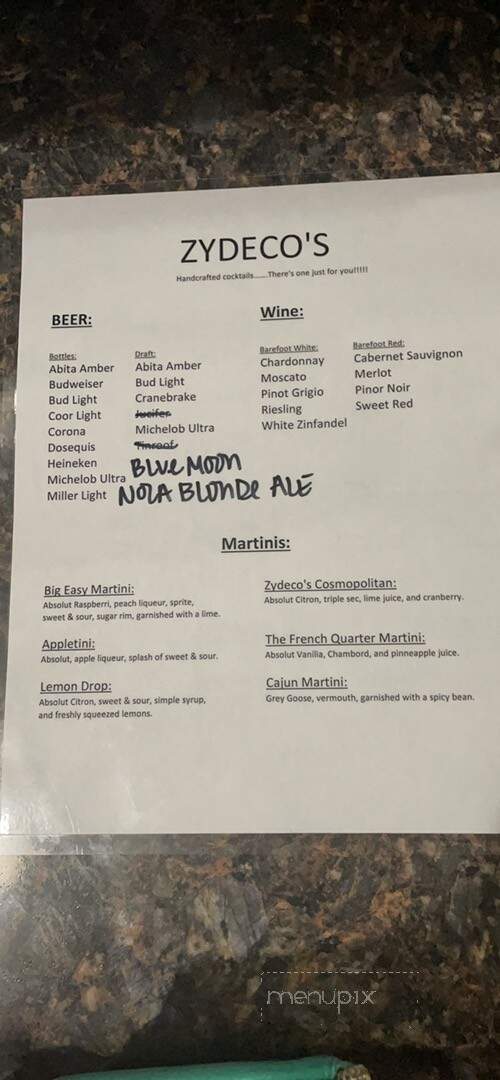 ZYDECO'S
Handcrafted cocktails......There's one just for you!!!!!
BEER:
Bottles:
Abita Amber
Budweiser
Bud Light
Coor Light
Corona
Dosequis
Heineken
Michelob Ultra
Miller Light
Draft:
Abita Amber
Bud Light
Cranebrake
Jucifer
Michelob Ultra
Tinroof
BLUE MOON
NOLA BLONDE ALE
Wine:
Barefoot White:
Chardonnay
Moscato
Pinot Grigio
Riesling
White Zinfandel
Barefoot Red:
Cabernet Sauvignon
Merlot
Pinor Noir
Sweet Red
Martinis:
Big Easy Martini:
Absolut Raspberri, peach liqueur, sprite,
sweet & sour, sugar rim, garnished with a lime.
Appletini:
Absolut, apple liqueur, splash of sweet & sour.
Lemon Drop:
Absolut Citron, sweet & sour, simple syrup,
and freshly squeezed lemons.
Zydeco's Cosmopolitan:
Absolut Citron, triple sec, lime juice, and cranberry.
The French Quarter Martini:
Absolut Vanilia, Chambord, and pinneapple juice.
Cajun Martini:
Grey Goose, vermouth, garnished with a spicy bean.
menupix